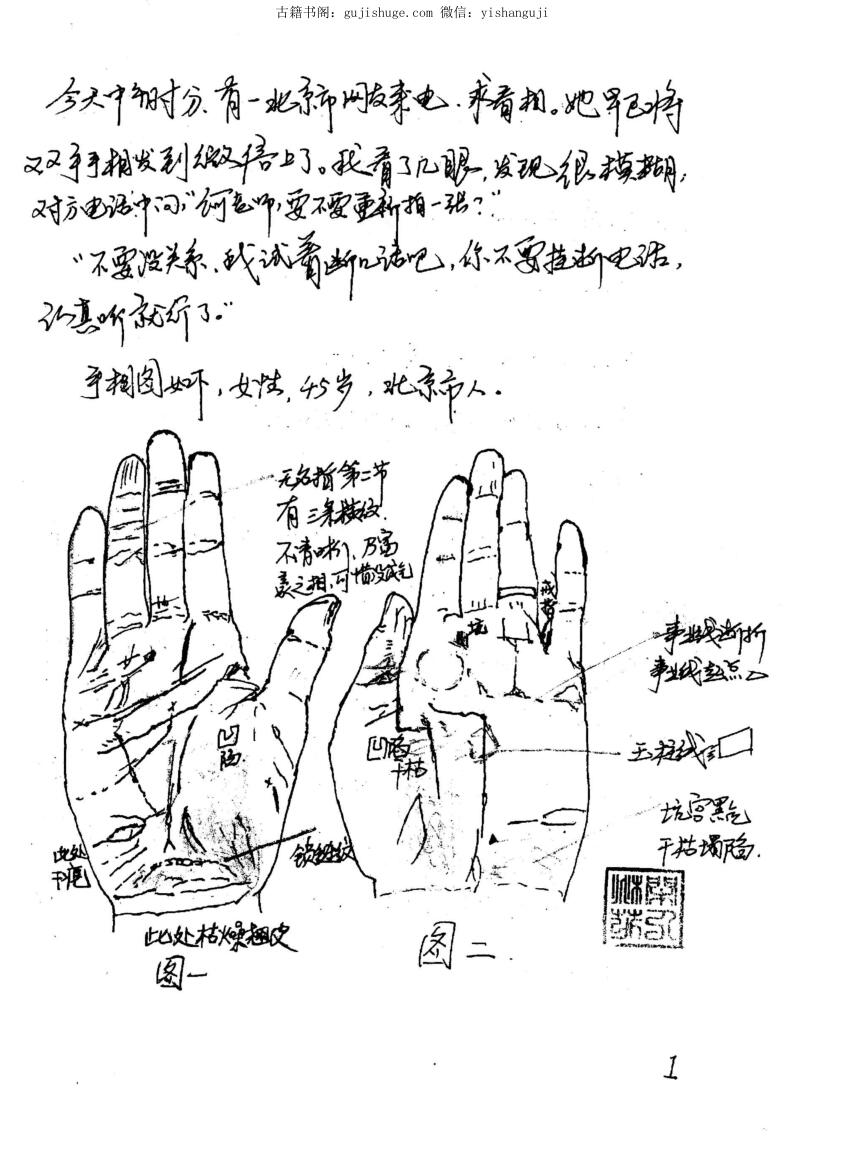 古籍书阁：gujishuge.com 微信：yishanguji
今天中午时分、有一北京市网友来电．求看相。她早已将
双手手相发到微信上了。我看了几眼，发现很模糊，
对方电话中问，“何老师，要不要重新拍一张？”
“不要没关系、我试着断几话吧，你不要挂断电话，
认真听就行了。”
手相图如下，女性，45岁，北京市人。
无名指第二节
有三条横纹
不清晰、乃富
豪之相，可惜没成
坑
戒指
事业线断折
事业线起点
凹陷
凹陷
干枯
玉柱线
坑宫黑气
干枯塌陷．
此处
锁链纹
此处枯燥翘皮
图一
图二
1